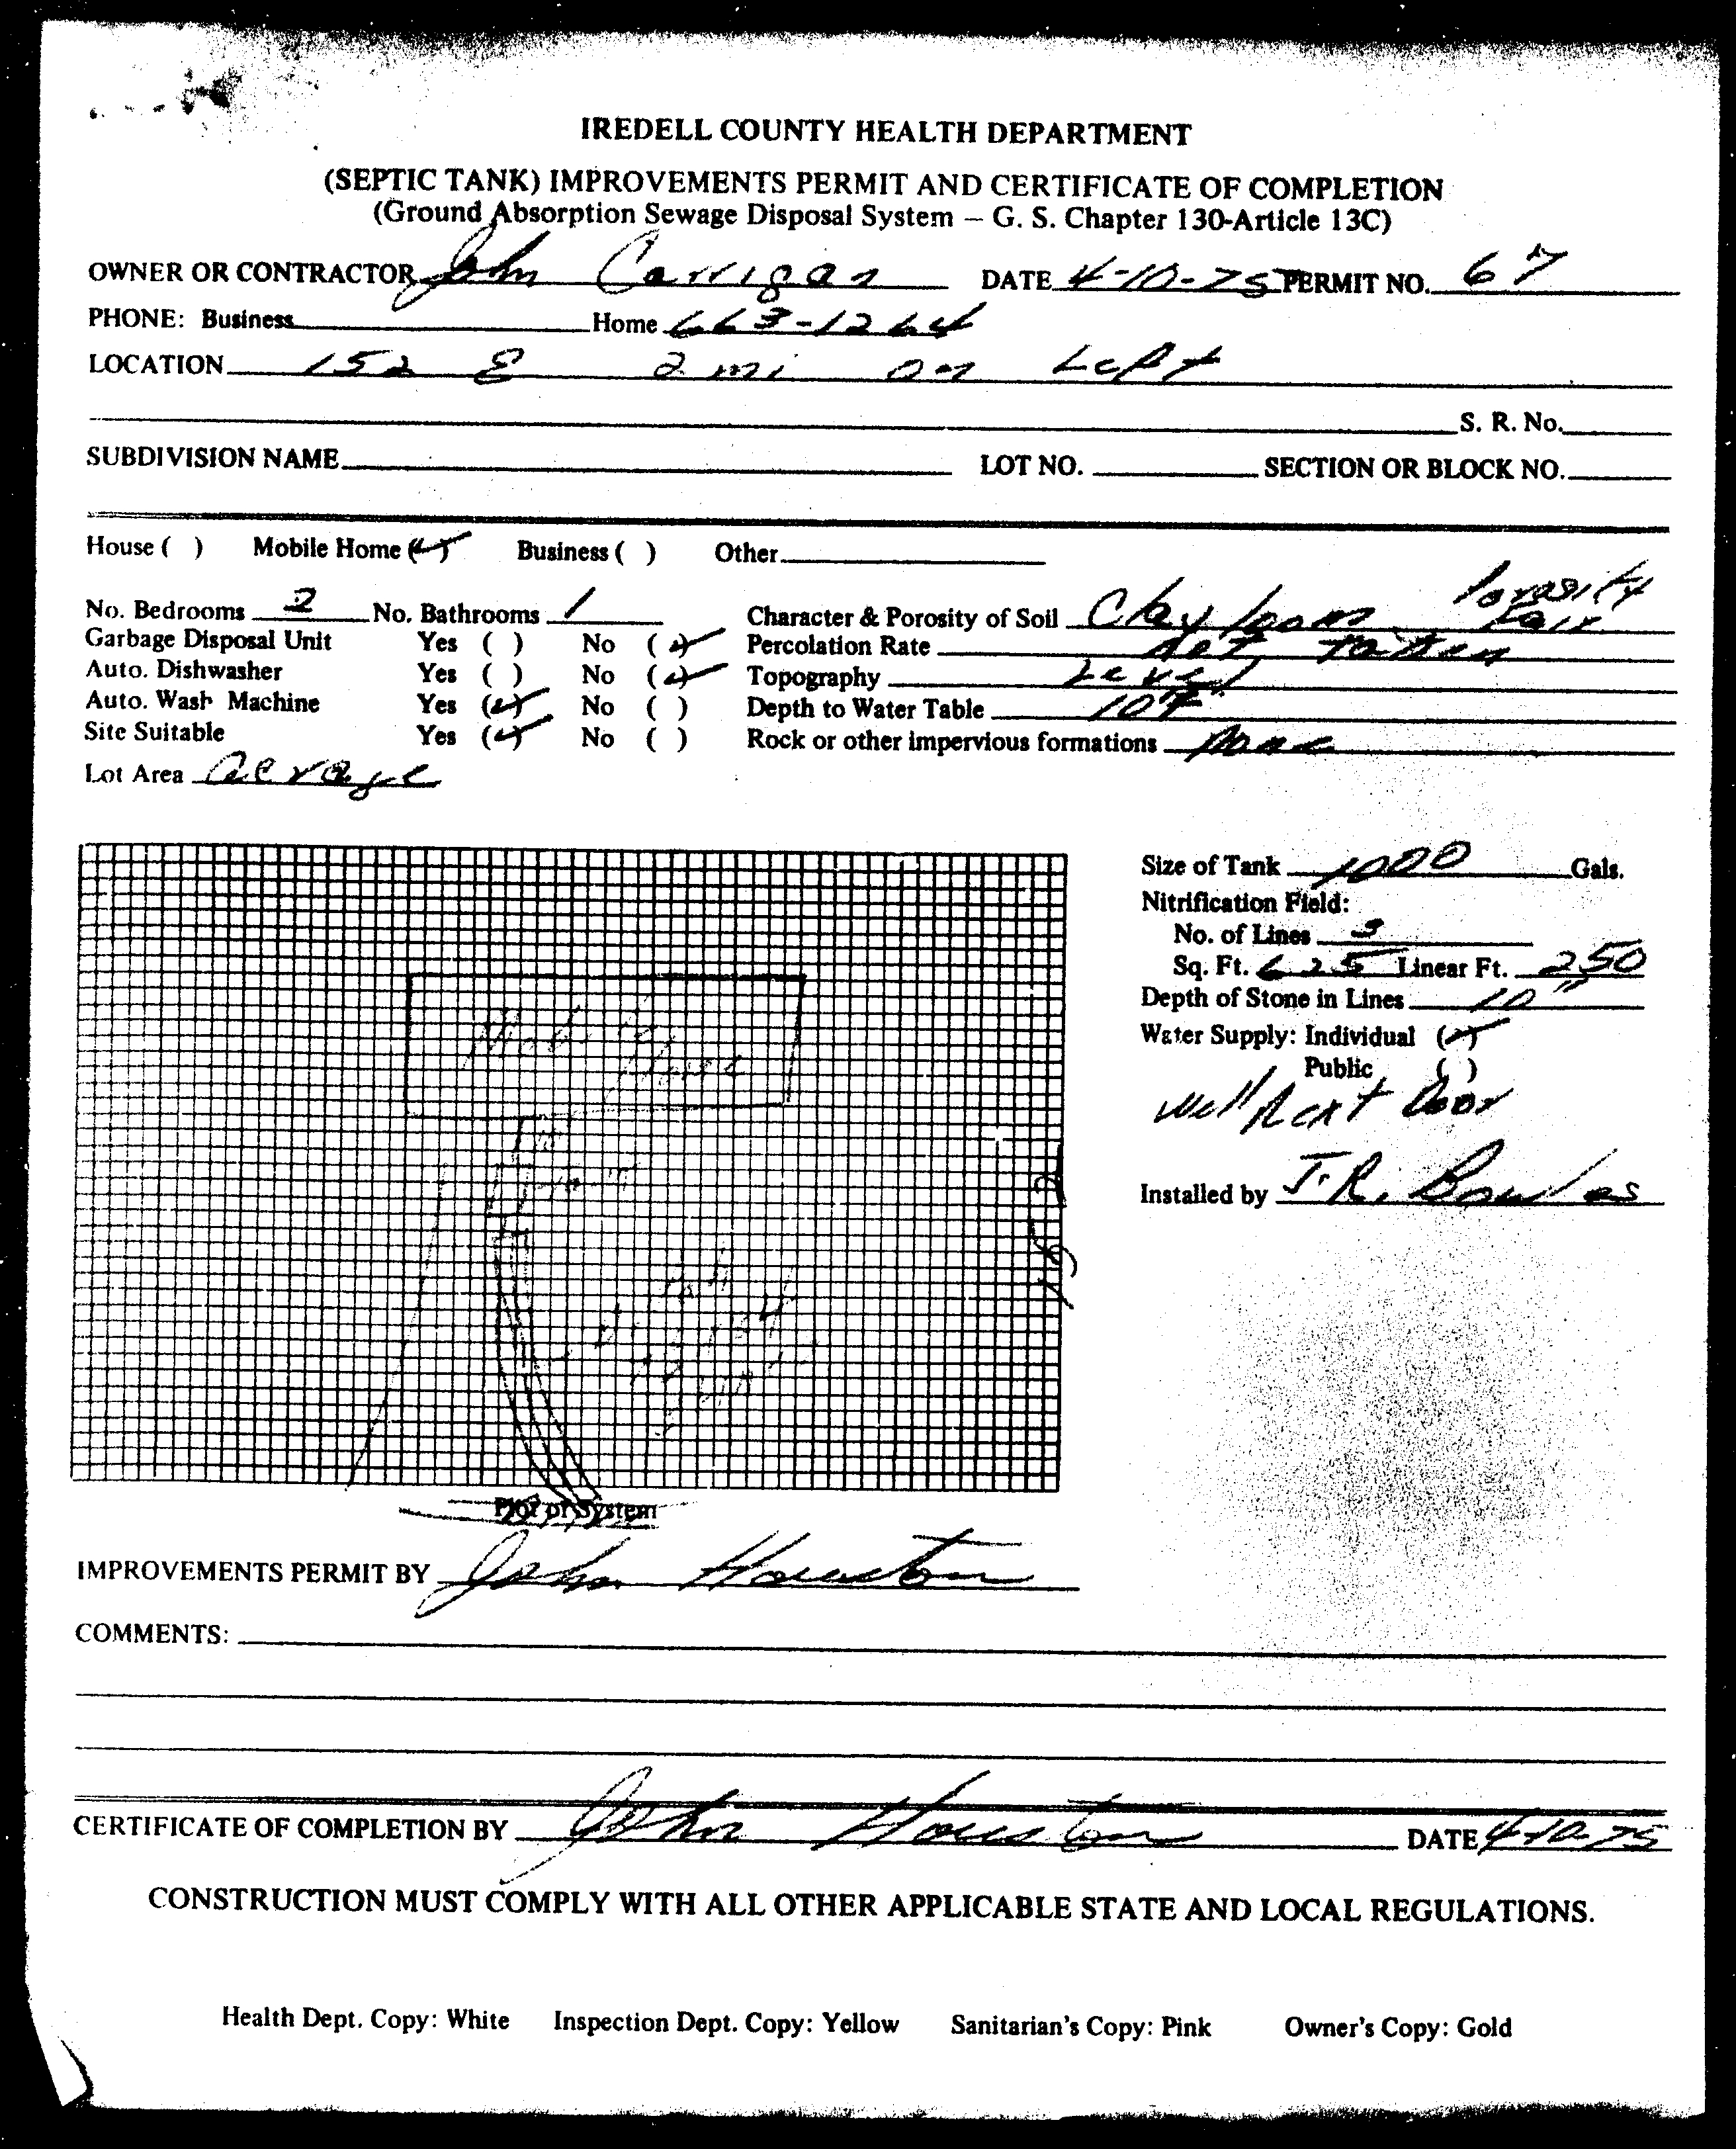 IREDELL COUNTY HEALTH DEPARTMENT
(SEPTIC TANK) IMPROVEMENTS PERMIT AND CERTIFICATE OF COMPLETION
(Ground Absorption Sewage Disposal System – G. S. Chapter 130-Article 13C)
OWNER OR CONTRACTOR John Carrigan DATE 4-10-75 PERMIT NO. 67
PHONE: Business Home 663-1264
LOCATION 152 E 2 mi on Left
S. R. No.
SUBDIVISION NAME LOT NO. SECTION OR BLOCK NO.
House ( ) Mobile Home (✓) Business ( ) Other
No. Bedrooms 2 No. Bathrooms 1 Character & Porosity of Soil Clay loam Porosity Fair
Garbage Disposal Unit Yes ( ) No (✓) Percolation Rate not taken
Auto. Dishwasher Yes ( ) No (✓) Topography Level
Auto. Wash Machine Yes (✓) No ( ) Depth to Water Table 10+
Site Suitable Yes (✓) No ( ) Rock or other impervious formations none
Lot Area acreage
Size of Tank 1000 Gals.
Nitrification Field:
No. of Lines 3
Sq. Ft. 625 Linear Ft. 250
Depth of Stone in Lines 10"
Water Supply: Individual (✓)
Public ( )
Well Next Door
Installed by J.R. Bowles
Mob Home
152
Plot of System
IMPROVEMENTS PERMIT BY John Houston
COMMENTS:
CERTIFICATE OF COMPLETION BY John Houston DATE 4-10-75
CONSTRUCTION MUST COMPLY WITH ALL OTHER APPLICABLE STATE AND LOCAL REGULATIONS.
Health Dept. Copy: White Inspection Dept. Copy: Yellow Sanitarian's Copy: Pink Owner's Copy: Gold